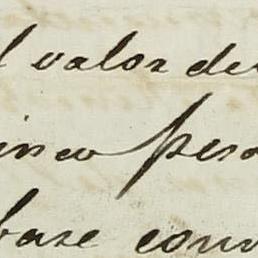 l valor de
inco peso
base conv